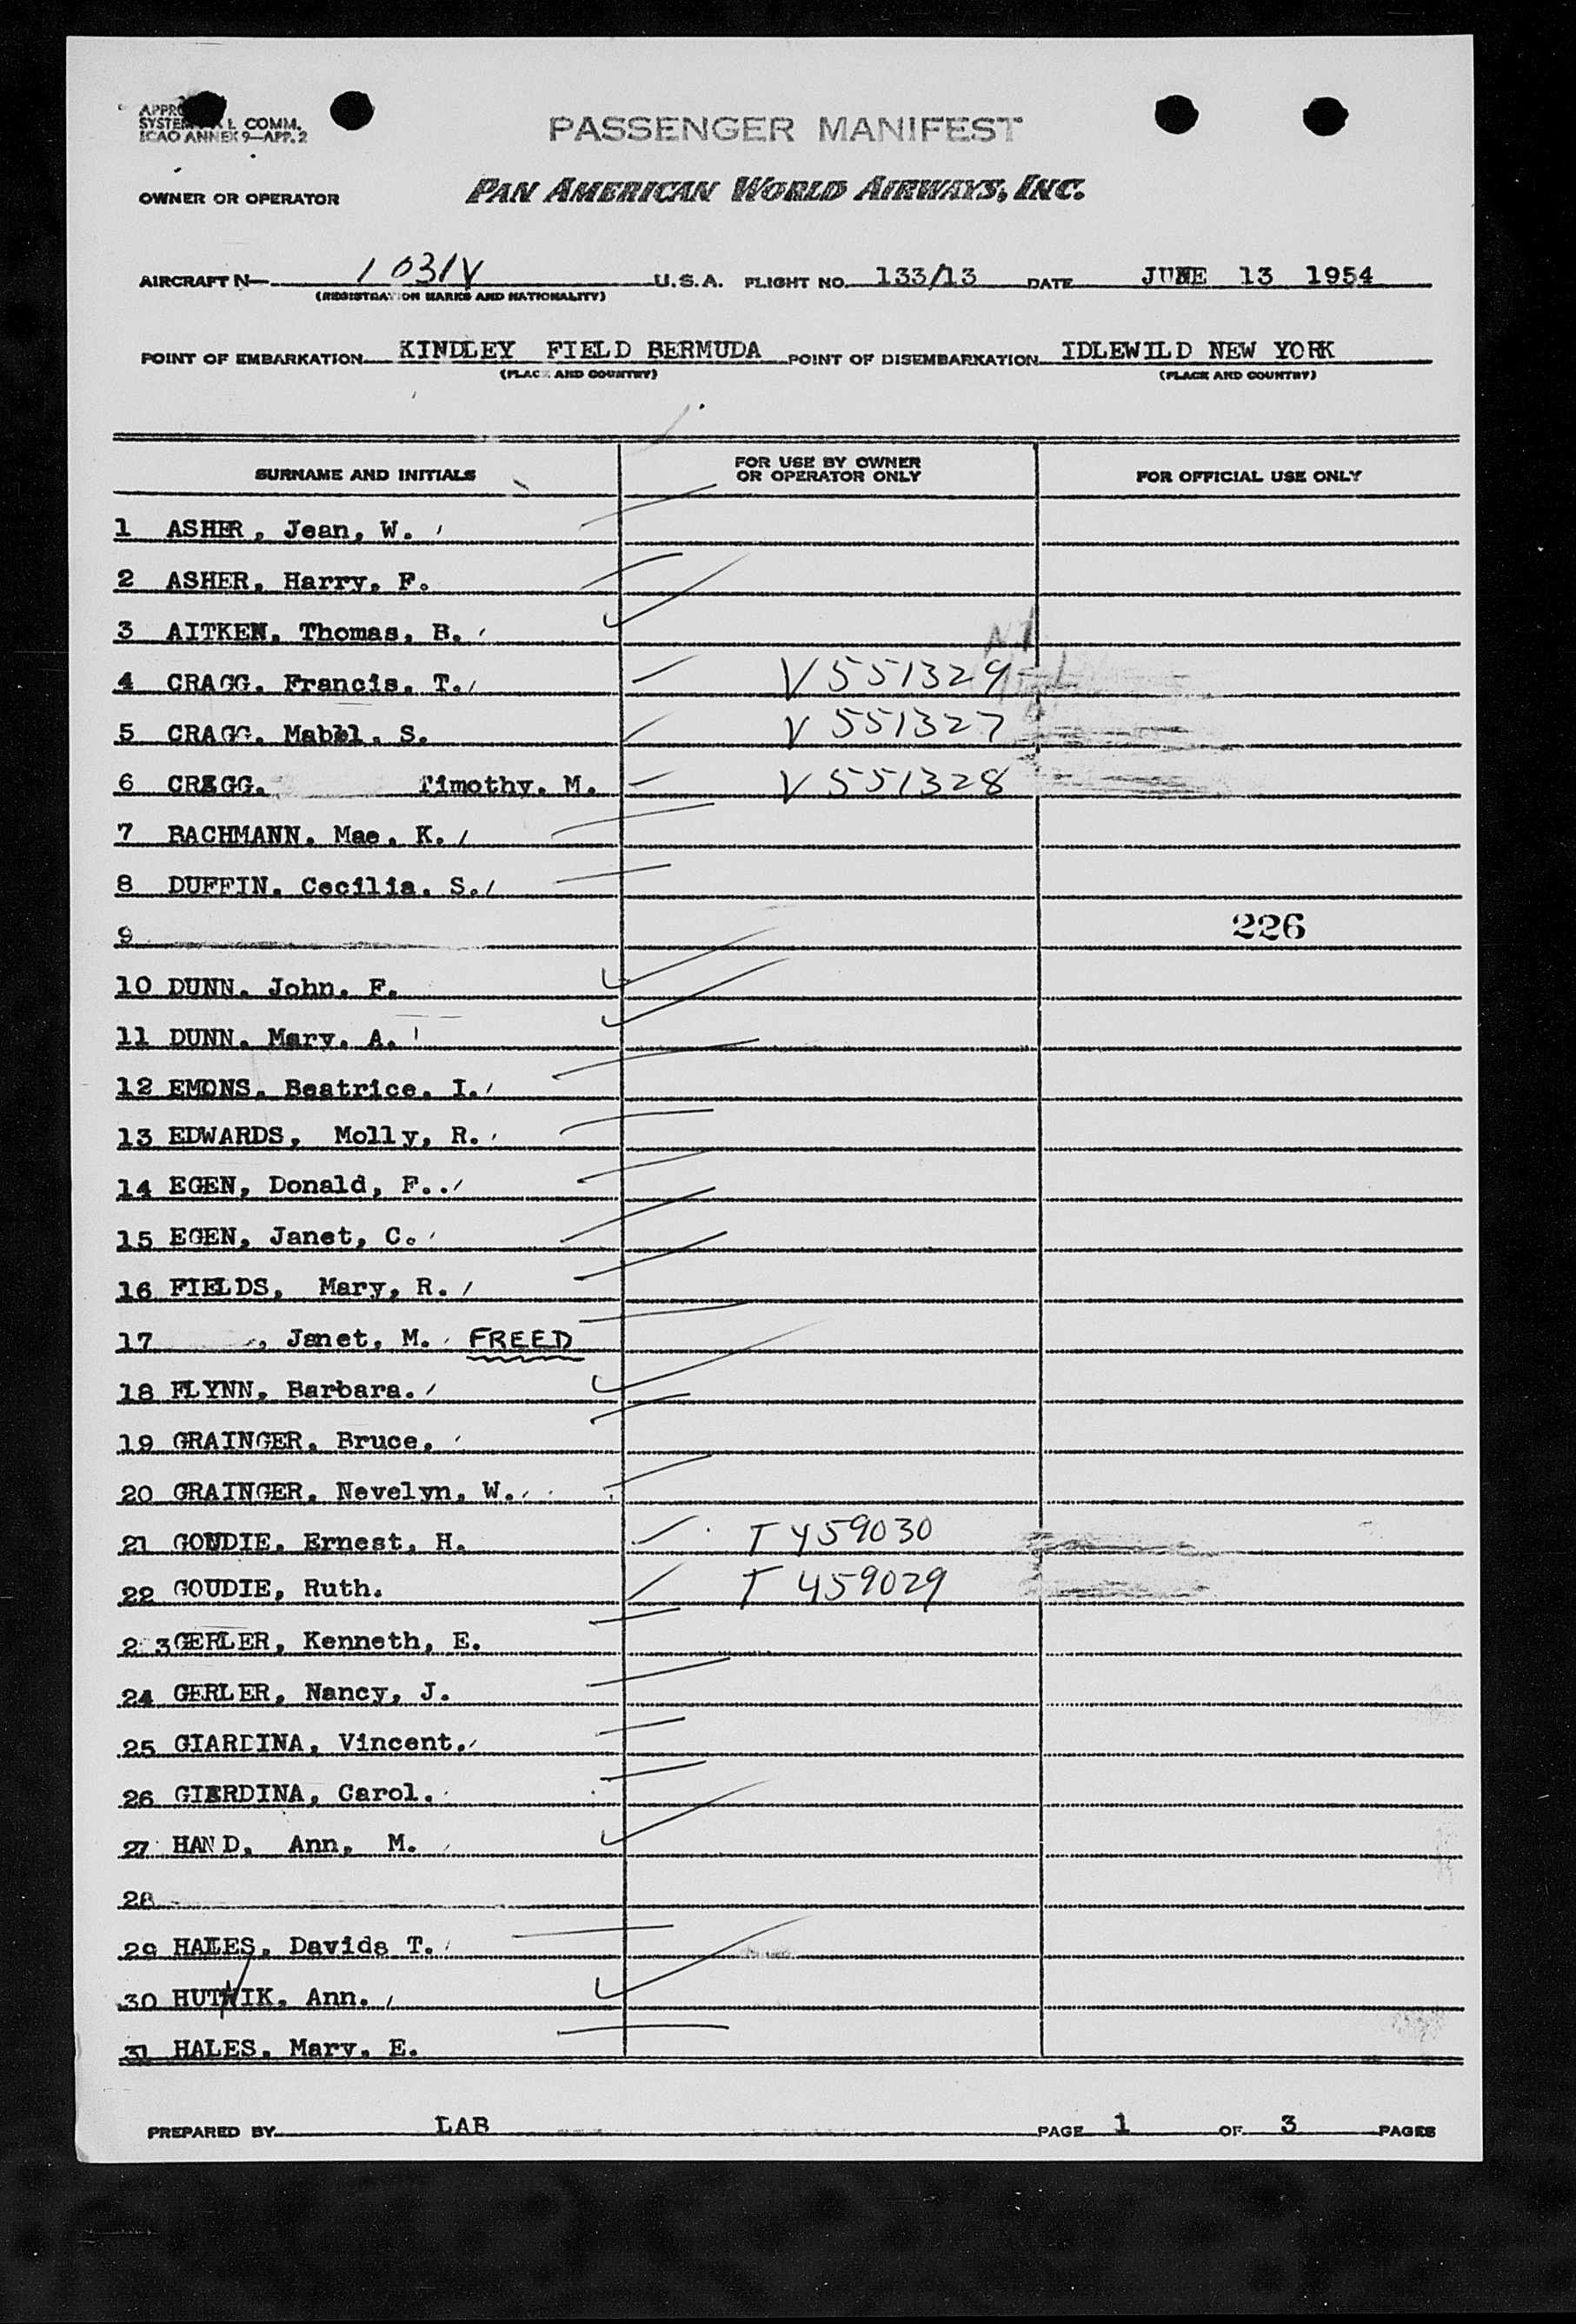 SYSTEM L COMM.
ICAO ANNEX 9—APP. 2
PASSENGER MANIFEST
OWNER OR OPERATOR PAN AMERICAN WORLD AIRWAYS, INC.
AIRCRAFT N— 1031V U.S.A. FLIGHT NO. 133/13 DATE JUNE 13 1954
(REGISTRATION MARKS AND NATIONALITY)
POINT OF EMBARKATION KINDLEY FIELD BERMUDA POINT OF DISEMBARKATION IDLEWILD NEW YORK
(PLACE AND COUNTRY) (PLACE AND COUNTRY)
SURNAME AND INITIALS FOR USE BY OWNER OR OPERATOR ONLY FOR OFFICIAL USE ONLY
1 ASHER, Jean, W.
2 ASHER, Harry, F.
3 AITKEN, Thomas, B.
4 CRAGG, Francis, T. V 551329
5 CRAGG, Mabel, S. V 551327
6 CRAGG, Timothy, M. V 551328
7 BACHMANN, Mae, K.
8 DUFFIN, Cecilia, S.
9 226
10 DUNN, John, F.
11 DUNN, Mary, A.
12 EMONS, Beatrice, I.
13 EDWARDS, Molly, R.
14 EGEN, Donald, F..
15 EGEN, Janet, C.
16 FIELDS, Mary, R.
17 , Janet, M. FREED
18 FLYNN, Barbara.
19 GRAINGER, Bruce,
20 GRAINGER, Nevelyn, W.
21 GOUDIE, Ernest, H. T 459030
22 GOUDIE, Ruth. T 459029
23 GERLER, Kenneth, E.
24 GERLER, Nancy, J.
25 GIARDINA, Vincent.
26 GIARDINA, Carol.
27 HAND, Ann, M.
28
29 HALES, Davids T.
30 HUTNIK, Ann.
31 HALES, Mary, E.
PREPARED BY LAB PAGE 1 OF 3 PAGES